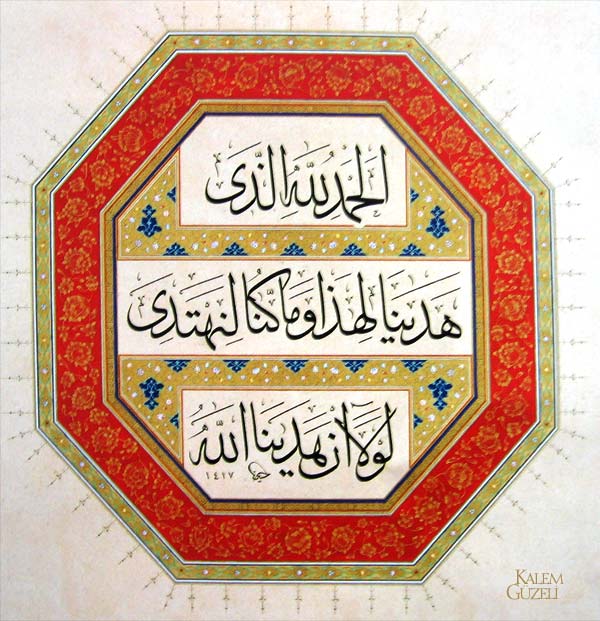 الحمد لله الذى
هدينا لهذا وما كنا لنهتدى
لولا ان هدينا الله
١٤١٧
KALEM
GÜZELİ